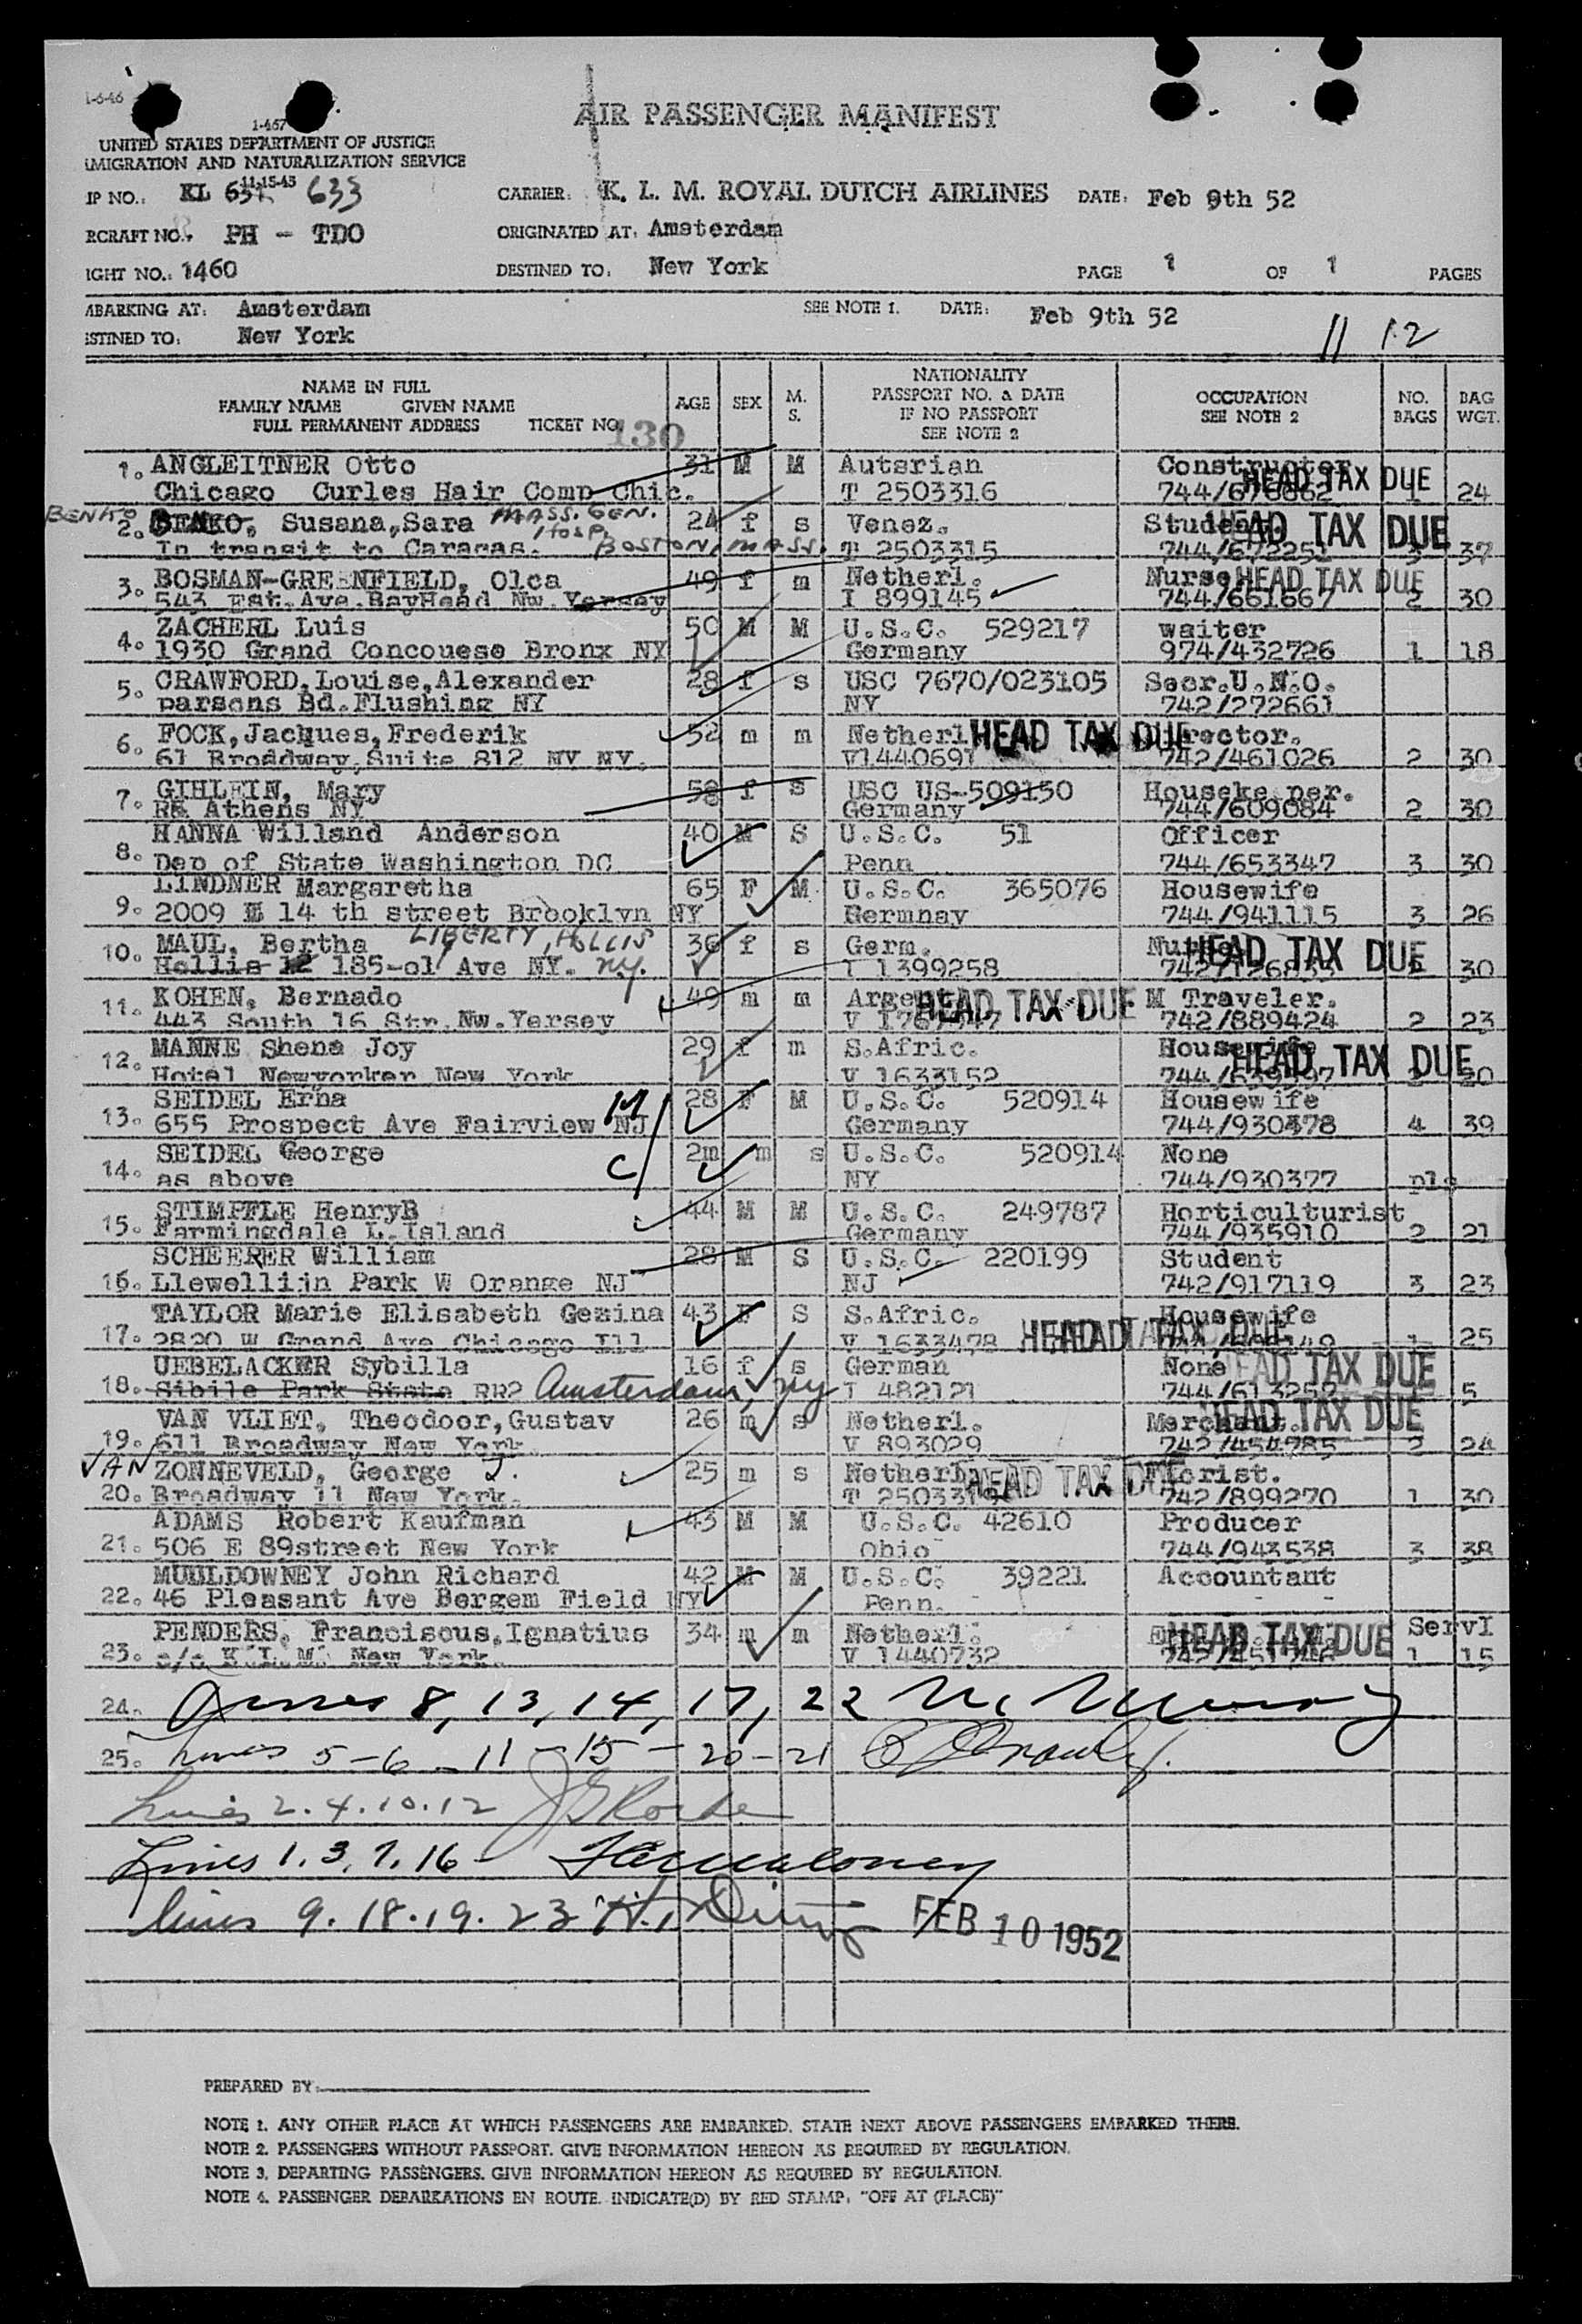 1-6-46
1-467
AIR PASSENGER MANIFEST
UNITED STATES DEPARTMENT OF JUSTICE
IMIGRATION AND NATURALIZATION SERVICE
11-15-45
IP NO.: KL 631 633 CARRIER: K. L. M. ROYAL DUTCH AIRLINES DATE: Feb 9th 52
RCRAFT NO.: PH - TDO ORIGINATED AT: Amsterdam
IGHT NO.: 1460 DESTINED TO: New York PAGE 1 OF 1 PAGES
MBARKING AT: Amsterdam SEE NOTE 1. DATE: Feb 9th 52
STINED TO: New York 11 12
NAME IN FULL AGE SEX M. S. NATIONALITY OCCUPATION NO. BAG
FAMILY NAME GIVEN NAME PASSPORT NO. & DATE SEE NOTE 2 BAGS WGT.
FULL PERMANENT ADDRESS TICKET NO. 130 IF NO PASSPORT
SEE NOTE 2
1. ANGLEITNER Otto 31 M M Autsrian Constructor HEAD TAX DUE
Chicago Curles Hair Comp Chic. T 2503316 1 24
BENKO 2. BENKO, Susana,Sara MASS. GEN. HOSP. 24 f s Venez. Student. HEAD TAX DUE
In transit to Caracas. BOSTON, MASS. T 2503315 744/672251 3 37
3. BOSMAN-GREENFIELD, Olca 49 f m Netherl. Nurse HEAD TAX DUE
543 Est.Ave.BayHead Nw.Yersey I 899145 744/661667 2 30
4. ZACHERL Luis 50 M M U.S.C. 529217 waiter
1930 Grand Concouese Bronx NY Germany 974/432726 1 18
5. CRAWFORD,Louise,Alexander 28 f s USC 7670/023105 Secr.U.N.O.
parsons Bd.Flushing NY NY 742/272661
6. FOCK,Jacques,Frederik 52 m m Netherl HEAD TAX DUE Director.
61 Broadway,Suite 812 NY NY. V1440691 742/461026 2 30
7. GIHLEIN, Mary 58 f s USC US-509150 Houseke per.
RR Athens NY Germany 744/609084 2 30
8. HANNA Willand Anderson 40 M S U.S.C. 51 Officer
Dep of State Washington DC Penn 744/653347 3 30
9. LINDNER Margaretha 65 F M U.S.C. 365076 Housewife
2009 14 th street Brooklyn NY Germnay 744/941115 3 26
10. MAUL, Bertha LIBERTY, HOLLIS 36 f s Germ. HEAD TAX DUE
Hollis 12 185-01 Ave NY. N.Y. I 1399258 30
11. KOHEN, Bernado 49 m m Argent. HEAD TAX DUE M Traveler.
443 South 16 Str.Nw.Yersey 742/889424 2 23
12. MANNE Shena Joy 29 f m S.Afric. Housewife HEAD TAX DUE
Hotel Newyorker New York V 1633152
13. SEIDEL Erna M/ 28 F M U.S.C. 520914 Housewife
655 Prospect Ave Fairview NJ Germany 744/930378 4 39
14. SEIDEL George C/ 2m m s U.S.C. 520914 None
as above NY 744/930377 pls
15. STIMPFLE HenryB 44 M M U.S.C. 249787 Horticulturist
Farmingdale L.Island Germany 744/935910 2 21
SCHEERER William 28 M S U.S.C. 220199 Student
16. Llewelliin Park W Orange NJ NJ 742/917119 3 23
TAYLOR Marie Elisabeth Gezina 43 F S S.Afric. Housewife
17. 2820 W Grand Ave Chicago Ill V 1633478 HEAD TAX DUE 1 25
UEBELACKER Sybilla 16 f s German None HEAD TAX DUE
18. Sibile Park State RR2 Amsterdam, NY I 482121 5
VAN VLIET, Theodoor,Gustav 26 m s Netherl. Merchant. HEAD TAX DUE
19. 611 Broadway New York. V 893029 742/454785 2 24
VAN ZONNEVELD, George J. 25 m s Netherl. HEAD TAX DUE Florist.
20. Broadway 11 New York. 742/899270 1 30
ADAMS Robert Kaufman 43 M M U.S.C. 42610 Producer
21. 506 E 89street New York Ohio 744/943538 3 38
MUULDOWNEY John Richard 42 M M U.S.C. 39221 Accountant
22. 46 Pleasant Ave Bergem Field NY Penn. - -
PENDERS, Franciscus,Ignatius 34 m m Netherl. HEAD TAX DUE ServI
23. c/o K.L.M. New York. V 1440732 1 15
24. Lines 8, 13, 14, 17, 22
25. Lines 5-6-11-15-20-21
Lines 2.4.10.12
Lines 1.3.7.16-
lines 9.18.19.23
FEB 10 1952
PREPARED BY:
NOTE 1. ANY OTHER PLACE AT WHICH PASSENGERS ARE EMBARKED. STATE NEXT ABOVE PASSENGERS EMBARKED THERE.
NOTE 2. PASSENGERS WITHOUT PASSPORT. GIVE INFORMATION HEREON AS REQUIRED BY REGULATION.
NOTE 3. DEPARTING PASSENGERS. GIVE INFORMATION HEREON AS REQUIRED BY REGULATION.
NOTE 4. PASSENGER DEBARKATIONS EN ROUTE. INDICATE(D) BY RED STAMP: "OFF AT (PLACE)"